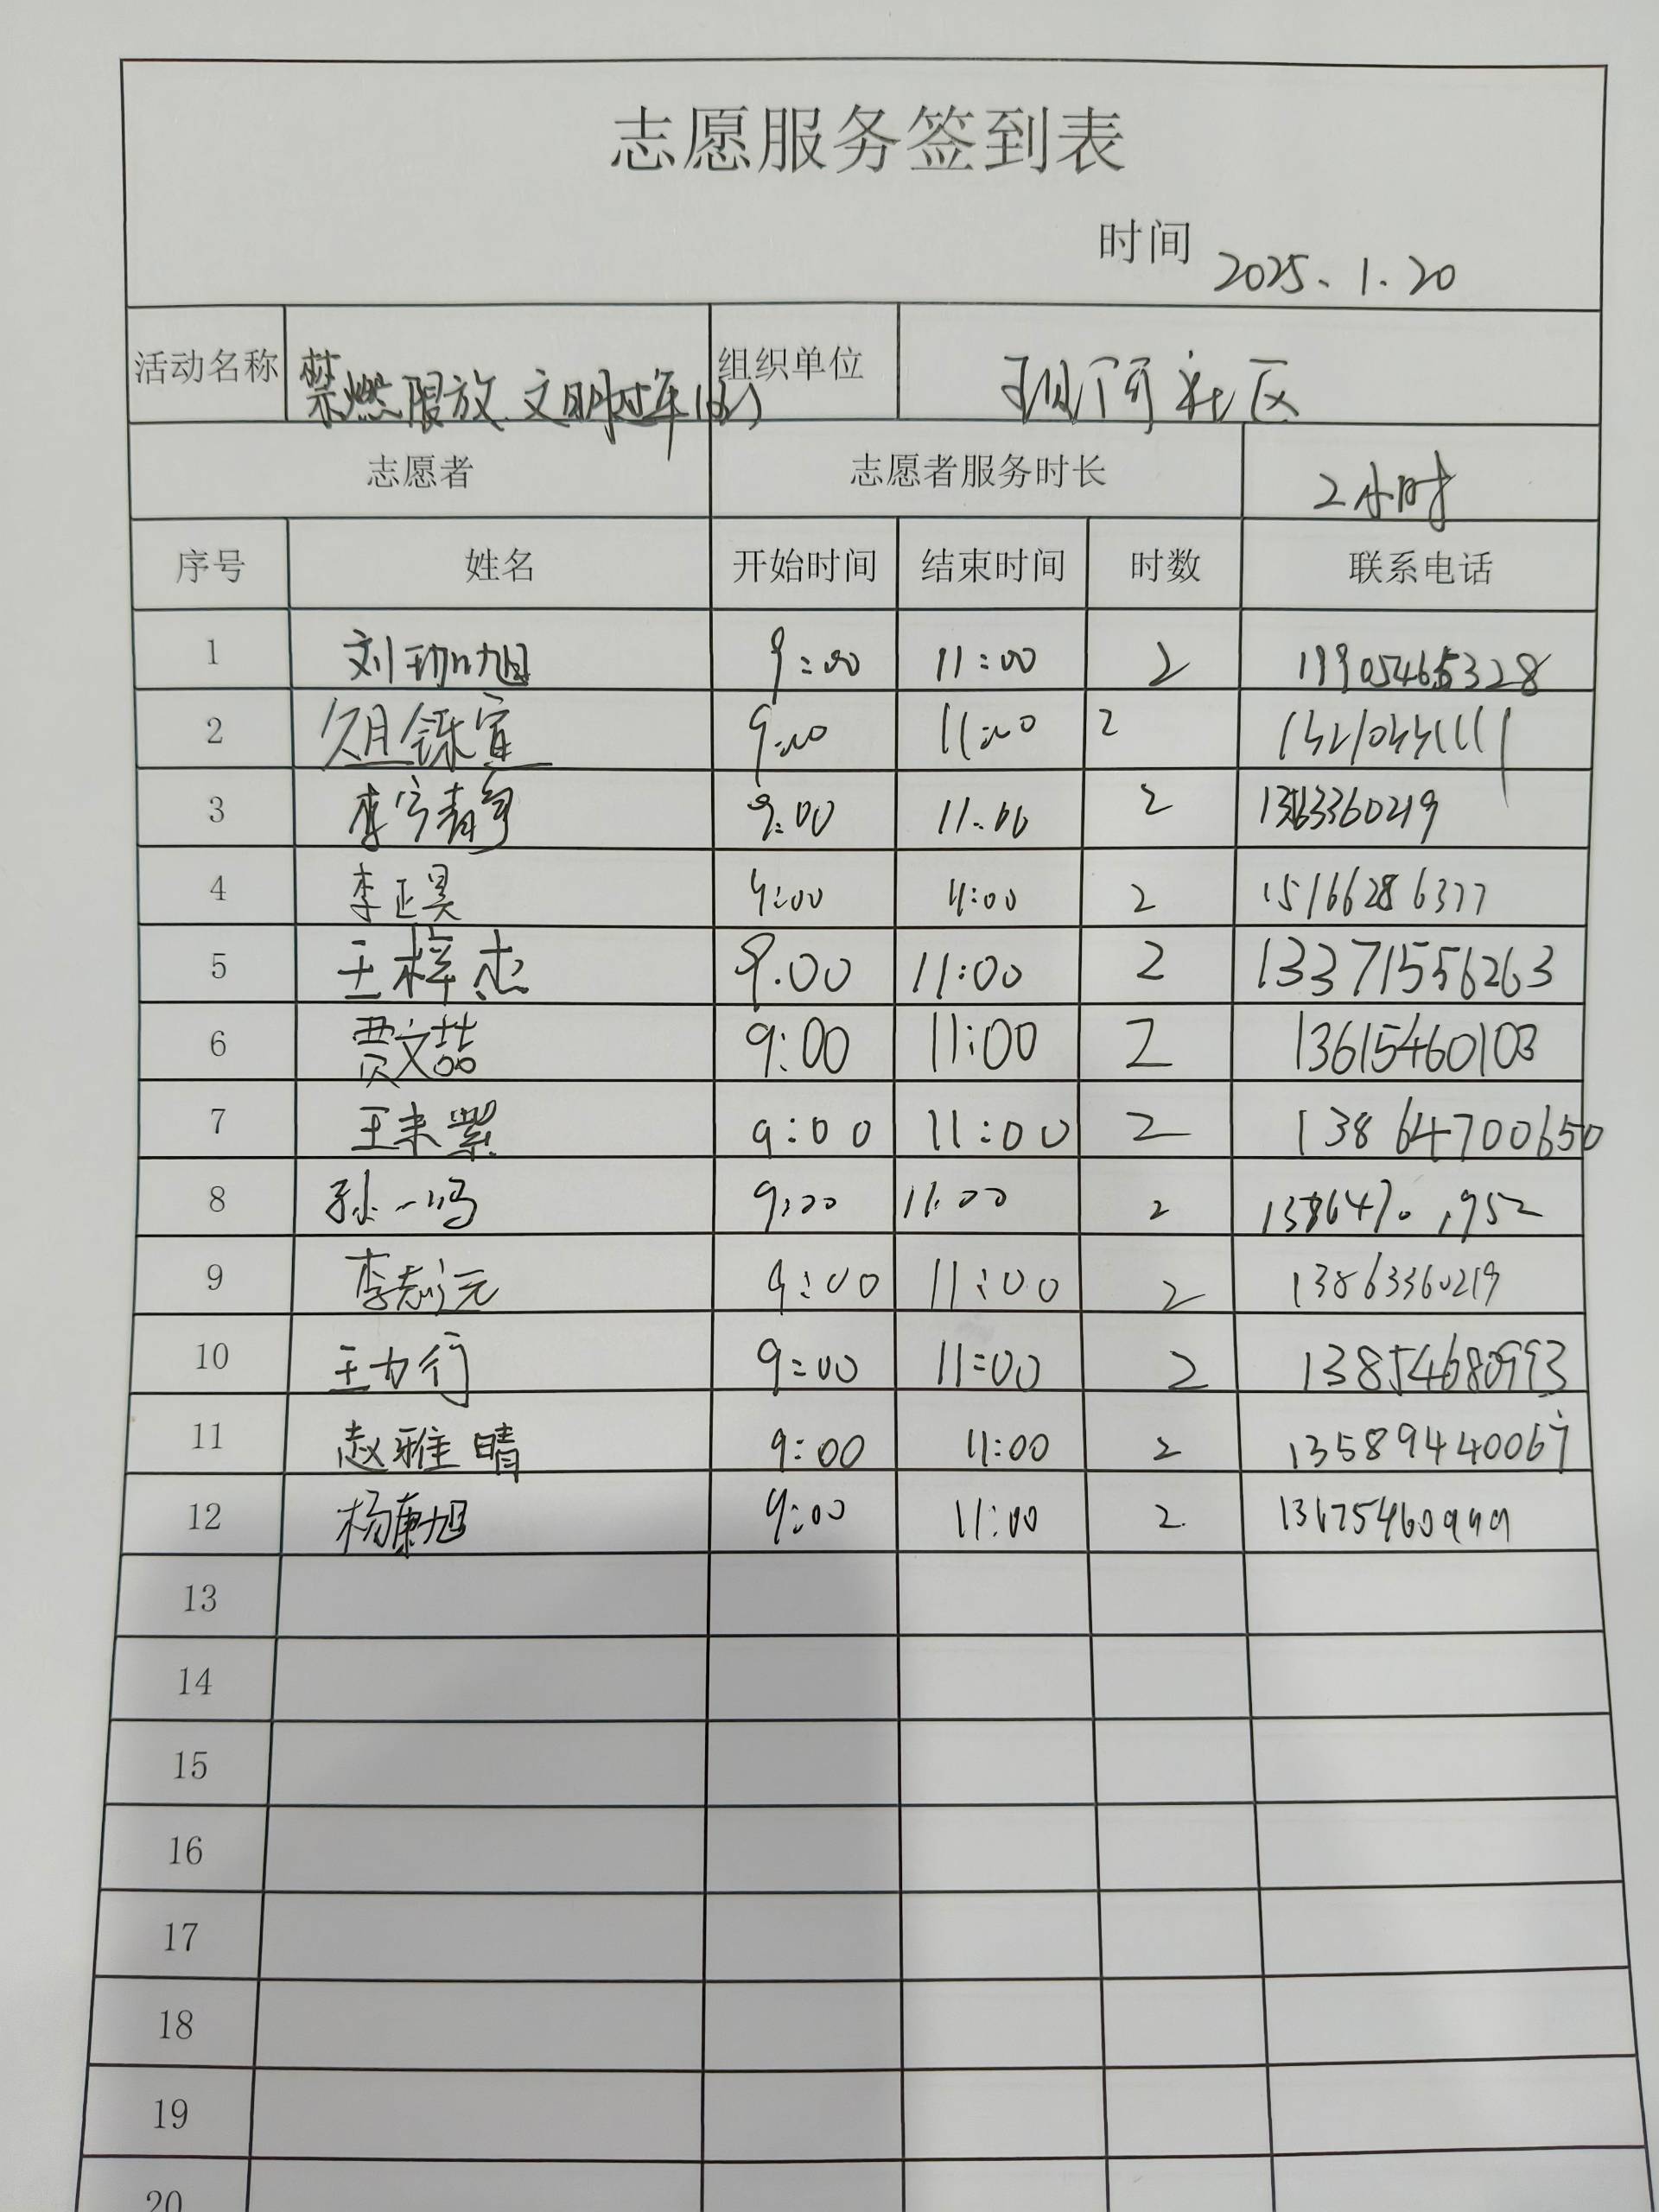 志愿服务签到表
时间 2025.1.20
活动名称 禁燃限放 文明过年 组织单位 社区
志愿者 志愿者服务时长 2小时
序号 姓名 开始时间 结束时间 时数 联系电话
1 刘 旭 9:00 11:00 2
2 9:00 11:00 2
3 李宇静 9:00 11:00 2
4 李正昊 9:00 11:00 2 15166286377
5 王梓杰 9.00 11:00 2 13371556263
6 贾文喆 9:00 11:00 2 13615460103
7 王来紫 9:00 11:00 2 13864700650
8 孙一鸣 9:00 11:00 2
9 李志元 9:00 11:00 2 13863360219
10 王力行 9:00 11:00 2 13854680993
11 赵雅晴 9:00 11:00 2 13589440067
12 杨康旭 9:00 11:00 2 13675460999
13
14
15
16
17
18
19
20